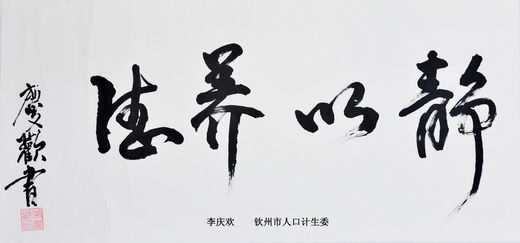 静以养德
慶歡書
李庆欢 钦州市人口计生委